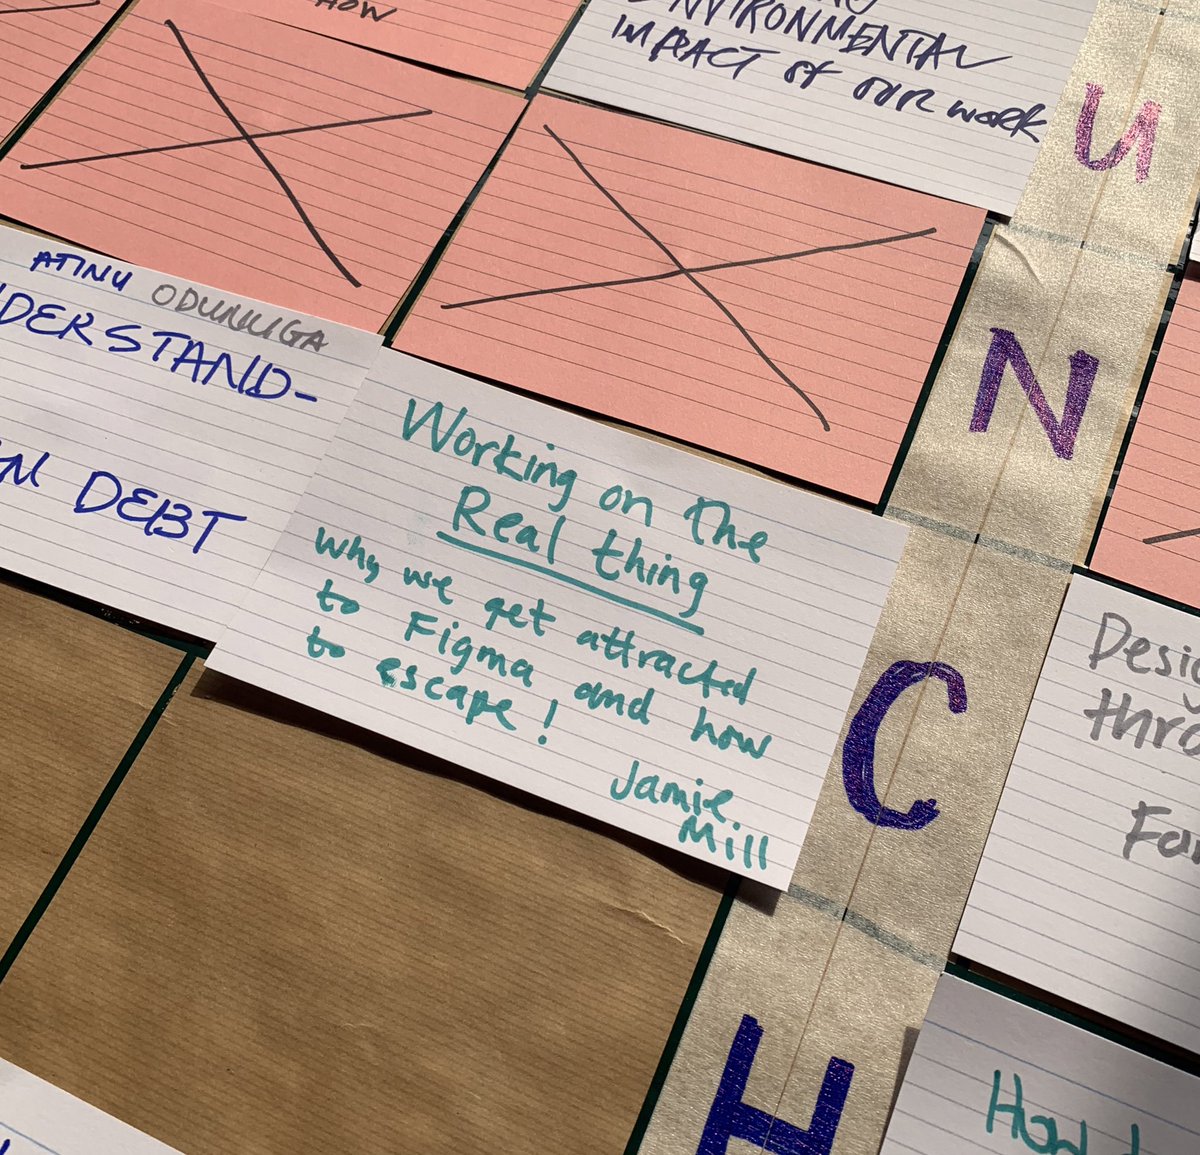 HOW
ENVIRONMENTAL
IMPACT of our work
U
N
C
H
ATINU ODUNUGA
DERSTAND-
DEBT
Working on the
Real thing
why we get attracted
to Figma and how
to escape!
Jamie
Mill
How